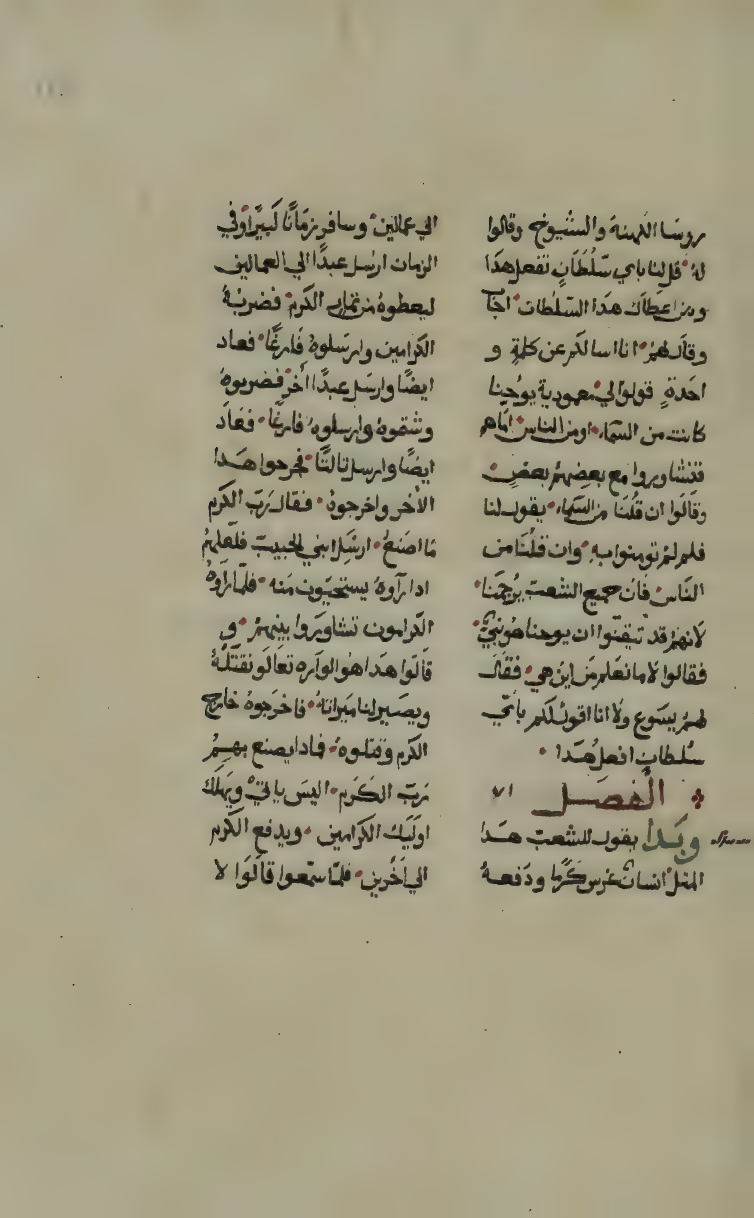 روسا الكهنة والشيوخ وقالوا
له قل لنا باي سلطان تفعل هدا
ومن اعطاك هدا السلطان اجاب
وقال لهم انا اسالكم عن كلمة و
احدة قولوا لي معمودية يوحنا
كانت من السما او من الناس اما هم
فتشاوروا مع بعضهم بعض
وقالوا ان قلنا من السما يقول لنا
فلم لم تومنوا به وان قلنا من
الناس فان جميع الشعب يرجمنا
لانهم قد تيقنوا ان يوحنا هو نبي
فقالوا لا ما نعلم من اين هي فقال
لهم يسوع ولا انا اقول لكم باي
سلطان افعل هدا
الفصل
وبدا يقول للشعب هدا
المثل انسان غرس كرما ودفعه
الي عمالين وسافر زمانا كبيرا وفي
الزمان ارسل عبدا الي العمالين
ليعطوه من ثمار الكرم فضربه
الكرامين وارسلوه فارغا فعاد
ايضا وارسل عبدا اخر فضربوه
وشتموه وارسلوه فارغا فعاد
ايضا وارسل تالتا فجرحوا هدا
الاخر واخرجوه فقال رب الكرم
ما اصنع ارسل ابني الحبيب فلعلهم
ادا راوه يستحيون منه فلما راوه
الكرامون تشاوروا بينهم و
قالوا هدا هو الوارت تعالو نقتله
ويصير لنا ميراته فاخرجوه خارج
الكرم وقتلوه فمادا يصنع بهم
رب الكرم اليس ياتي ويهلك
اوليك الكرامين ويدفع الكرم
الي اخرين فلما سمعوا قالوا لا